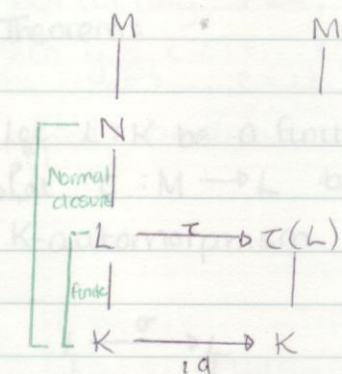 M M
N
Normal
closure
L τ τ(L)
finite
K K
id